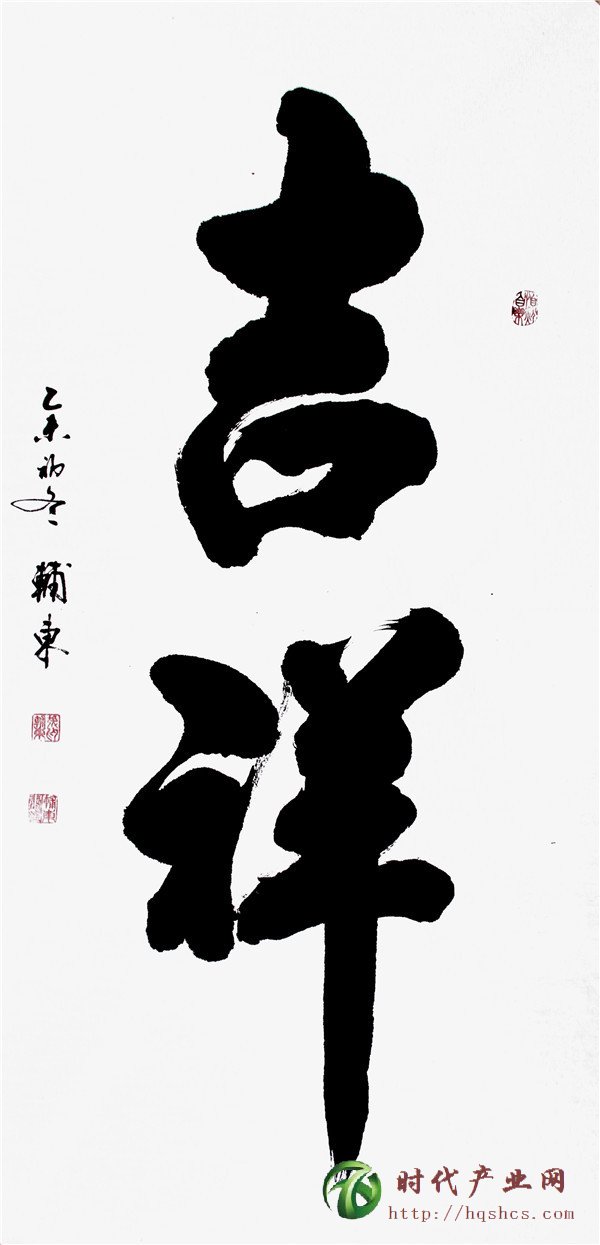 吉祥
乙未初冬 輔東
时代产业网
http://hqshcs.com